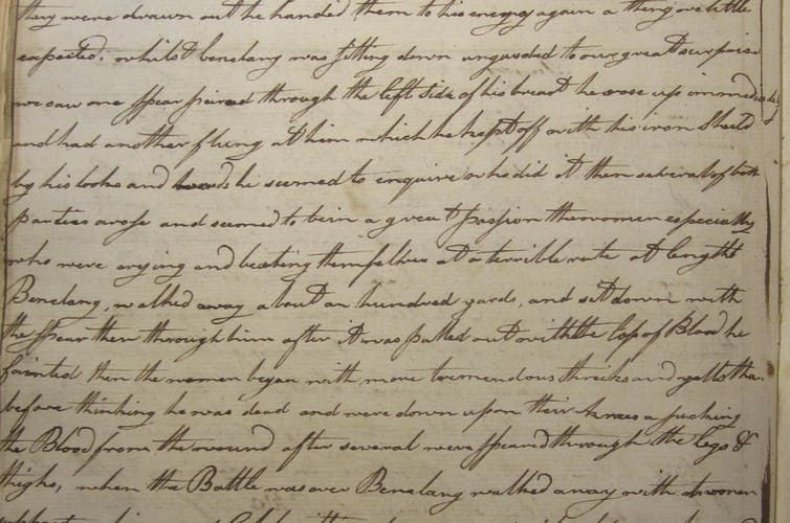 they were drawn out he handed them to his enemy again a thing we little
expected. whilst benelang was sitting down unguarded to our great surprise
we saw one spear peirced through the left side of his breast he arose up immediately
and had another flung at him which he kept off with his iron Sheild
by his looks and he seemed to enquire who did it then several of both
parties arose and seemed to be in a great passion the women especially
who were crying and beating themselves at a terrible rate at length
Benelang, walked away about an hundred yards, and sit down with
the spear then through him after it was pulled out with the loss of Blood he
fainted then the women began with more tremendous shrieks and yells than
before thinking he was dead and were down upon their knees a sucking
the Blood from the wound after several were speared through the legs &
thighs, when the Battle was over Benelang walked away with women